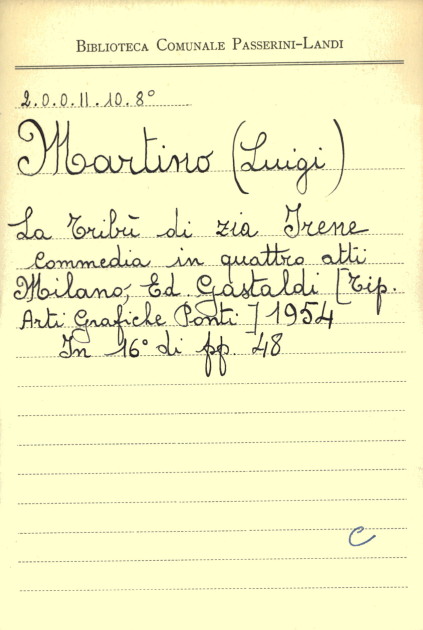 BIBLIOTECA COMUNALE PASSERINI-LANDI
2.0.0.II.10.8°
Martino (Luigi)
La Tribù di zia Irene
Commedia in quattro atti
Milano, Ed. Gastaldi [Tip.
Arti Grafiche Ponti] 1954
In 16° di pp. 48
C